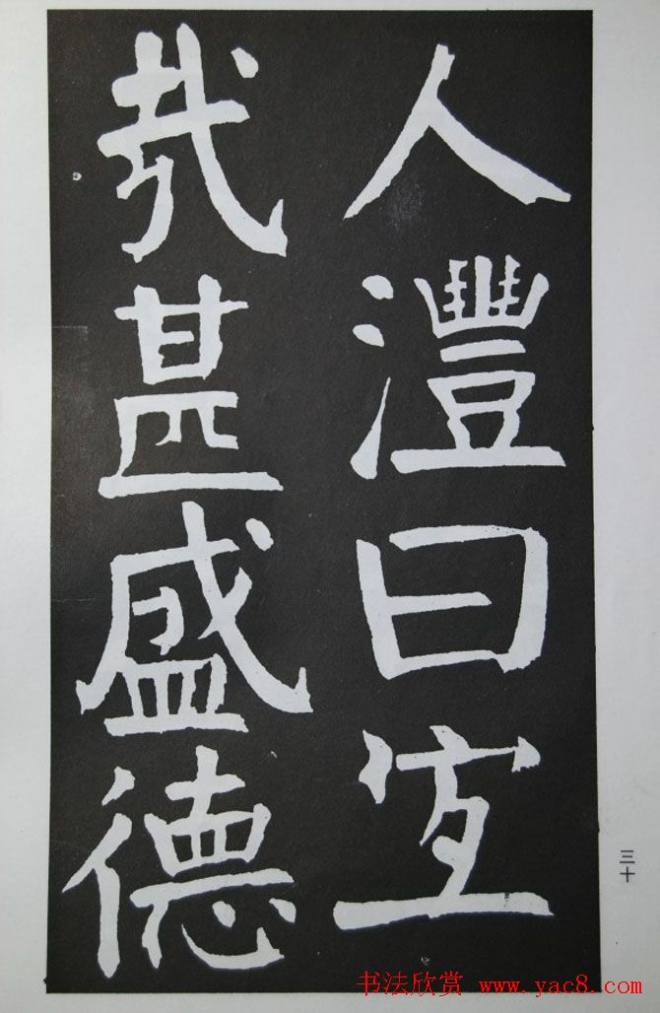 人灃曰宐
哉甚盛德
三十
书法欣赏 www.yac8.com